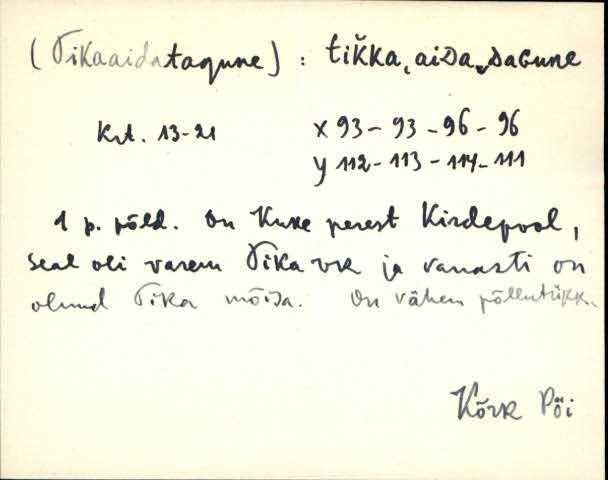 (Tikaaidatagune) : tiǨka, aiDa„DaGune
Krt. 13-21 x 93 - 93 - 96 - 96
y 112 - 113 - 114 - 111
1 p. põld. On Kuke perest Kirdepool,
seal oli varem Tika vk ja vanasti on
olnud Tika mõisa. On vähem põllutükk.
Kõrk Pöi